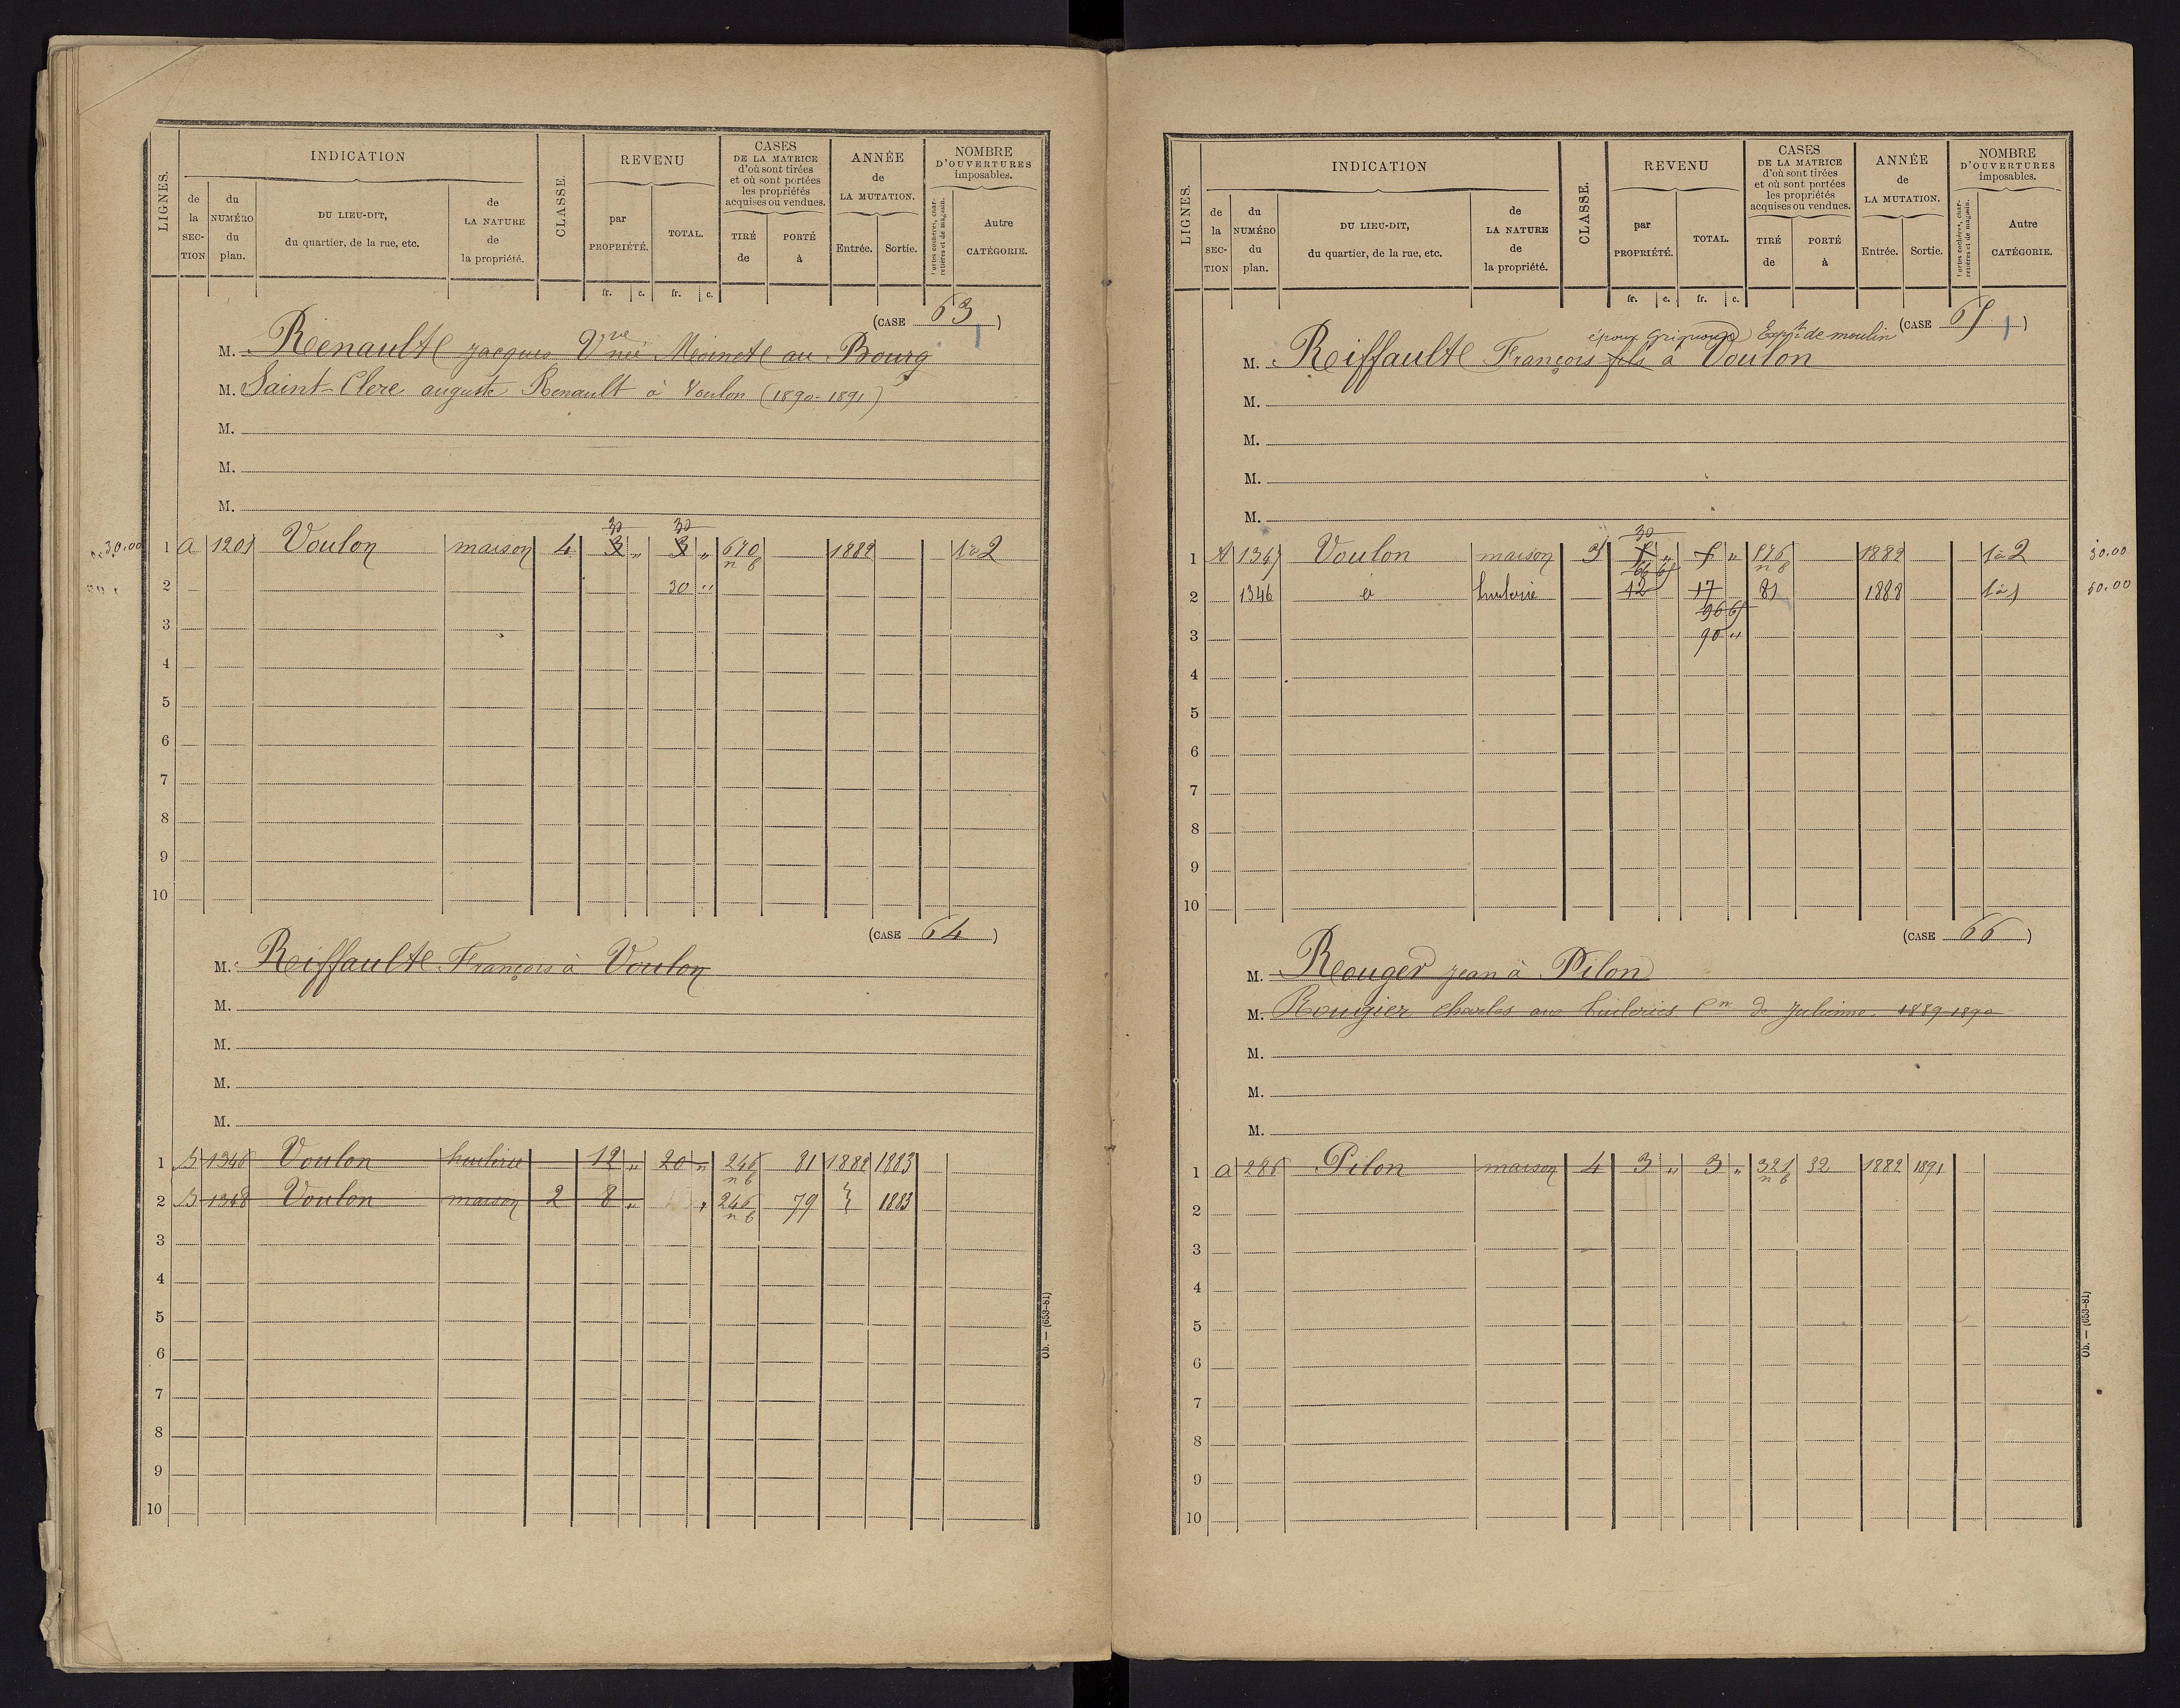 LIGNES.
INDICATION
de la SECTION
du NUMÉRO du plan.
DU LIEU-DIT, du quartier, de la rue, etc.
de LA NATURE de la propriété.
CLASSE.
REVENU
par PROPRIÉTÉ.
TOTAL.
fr. c. fr. c.
CASES DE LA MATRICE d'où sont tirées et où sont portées les propriétés acquises ou vendues.
TIRÉ de
PORTÉ à
ANNÉE de LA MUTATION.
Entrée. Sortie.
NOMBRE D'OUVERTURES imposables.
Portes cochères, charretières et de magasin.
Autre CATÉGORIE.
(CASE 63)
M. Renault jacques Vve née au Bourg
M. Saint-Clere auguste Renault à Voulon (1890-1891)
M.
M.
M.
30 30
30.00 1 a 1201 Voulon maison 4 3 " 3 " 670 1882 1à2
n b
2 30 "
3
4
5
6
7
8
9
10
(CASE 64)
M. Riffault François à Voulon
M.
M.
M.
M.
1 B 1346 Voulon huilerie 12 " 20 " 246 81 1882 1883
n b
2 B 1348 Voulon maison 2 8 " " 246 79 1883
n b
3
4
5
6
7
8
9
10
Ob. — (653-81)
LIGNES.
INDICATION
de la SECTION
du NUMÉRO du plan.
DU LIEU-DIT, du quartier, de la rue, etc.
de LA NATURE de la propriété.
CLASSE.
REVENU
par PROPRIÉTÉ.
TOTAL.
fr. c. fr. c.
CASES DE LA MATRICE d'où sont tirées et où sont portées les propriétés acquises ou vendues.
TIRÉ de
PORTÉ à
ANNÉE de LA MUTATION.
Entrée. Sortie.
NOMBRE D'OUVERTURES imposables.
Portes cochères, charretières et de magasin.
Autre CATÉGORIE.
(CASE 65)
époux de moulin
M. Riffault François fils à Voulon
M.
M.
M.
M.
30
1 1347 Voulon maison 3 5 " 5 " 1882 1à2 30.00
n b
2 1346 huilerie 12 17 81 1883 1à1 60.00
3 90 "
4
5
6
7
8
9
10
(CASE 66)
M. Rouger jean à Pilon
M. Rougier charles aux tuileries Cne de Julienne 1889-1890
M.
M.
M.
1 a 286 Pilon maison 4 3 " 3 " 321 32 1882 1891
n b
2
3
4
5
6
7
8
9
10
Ob. — (653-81)